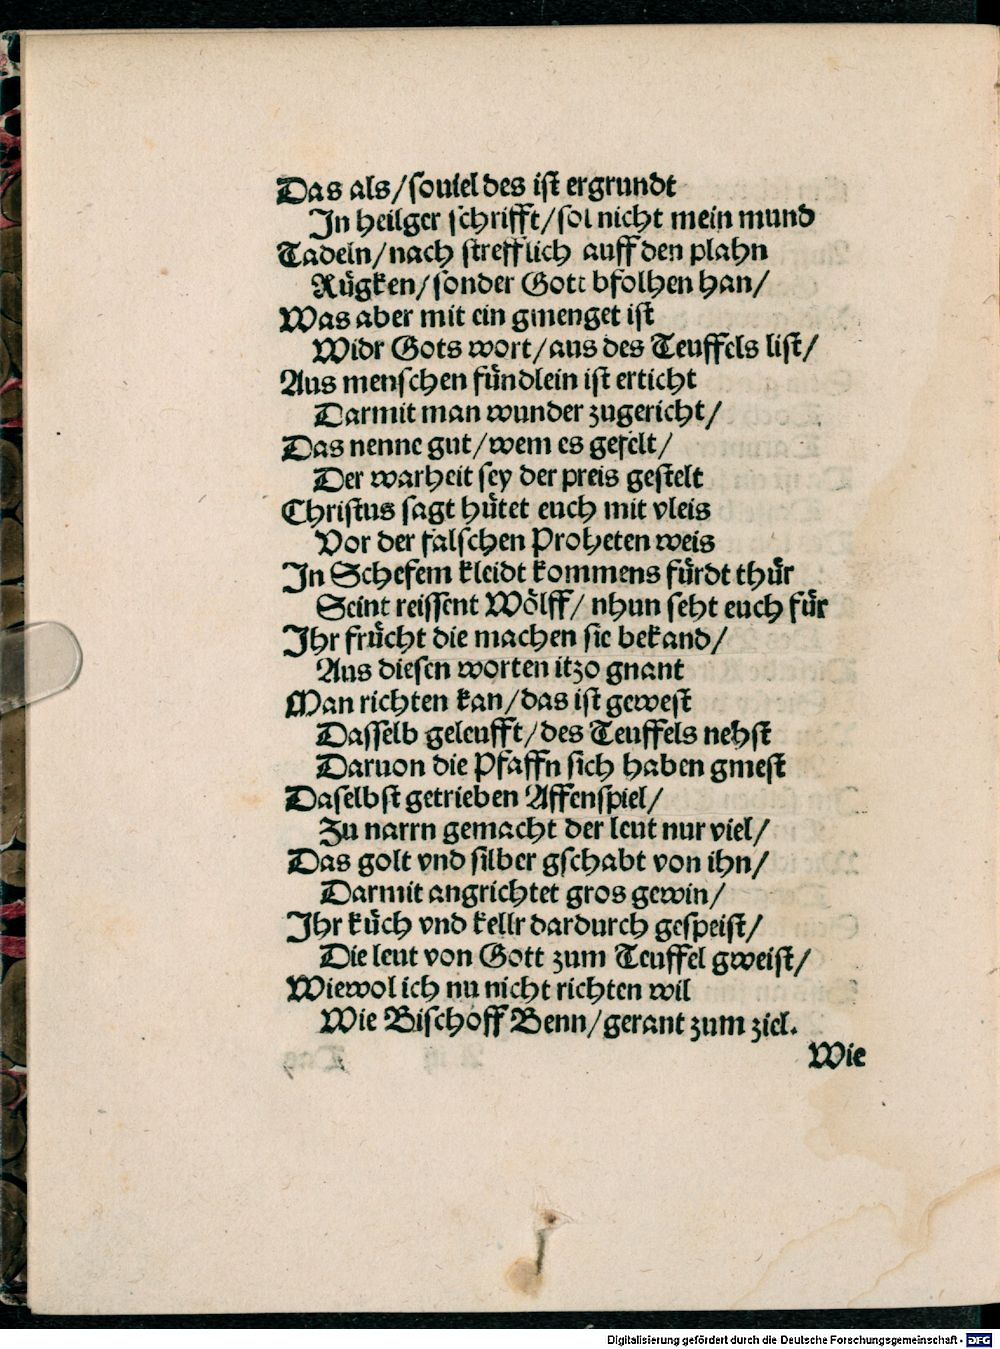 Das als/souiel des ist ergrundt
In heilger schrifft/sol nicht mein mund
Tadeln/nach strefflich auff den plahn
Rügken/sonder Gott bfolhen han/
Was aber mit ein gmenget ist
Widr Gots wort/aus des Teuffels list/
Aus menschen fündlein ist erticht
Darmit man wunder zugericht/
Das nenne gut/wem es gefelt/
Der warheit sey der preis gestelt
Christus sagt hütet euch mit vleis
Vor der falschen Proheten weis
In Schefem kleidt kommens fürdt thür
Seint reissent Wölff/nhun seht euch für
Ihr frücht die machen sie bekand/
Aus diesen worten itzo gnant
Man richten kan/das ist gewest
Dasselb geleufft/des Teuffels nehst
Daruon die Pfaffn sich haben gmest
Daselbst getrieben Affenspiel/
Zu narrn gemacht der leut nur viel/
Das golt vnd silber gschabt von ihn/
Darmit angrichtet gros gewin/
Ihr küch vnd kellr dardurch gespeist/
Die leut von Gott zum Teuffel gweist/
Wiewol ich nu nicht richten wil
Wie Bischoff Benn/gerant zum ziel.
Wie
Digitalisierung gefördert durch die Deutsche Forschungsgemeinschaft - DFG